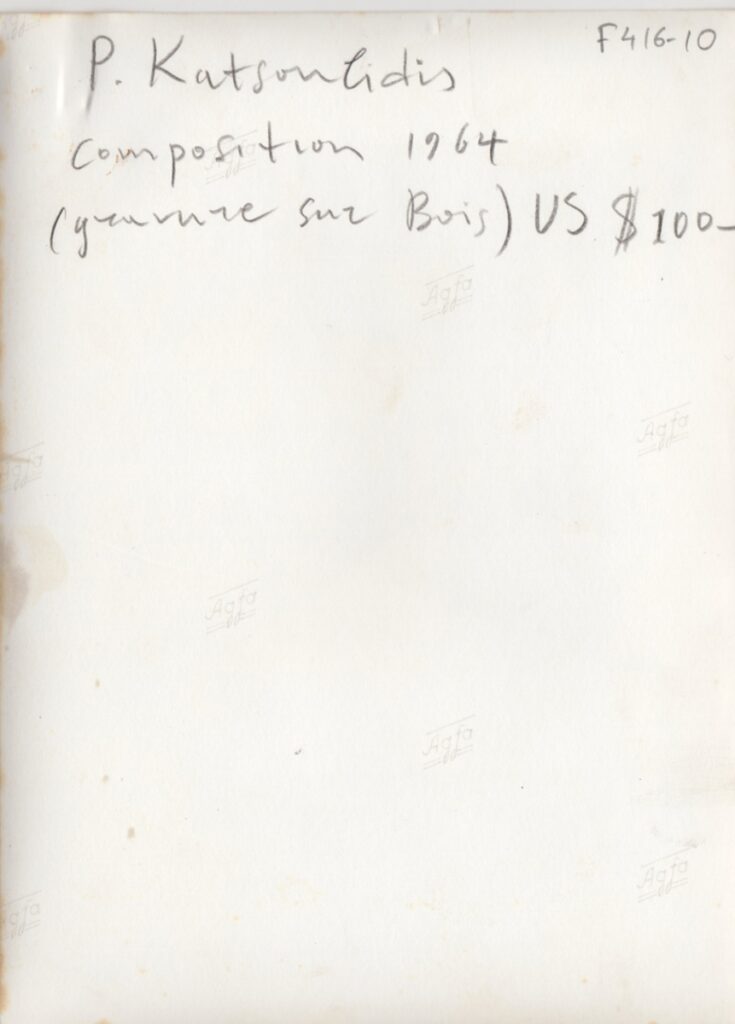 F416-10
P. Katsoulidis
Composition 1964
(gravure sur Bois) US $100-
Agfa
Agfa
Agfa
Agfa
Agfa
Agfa
Agfa